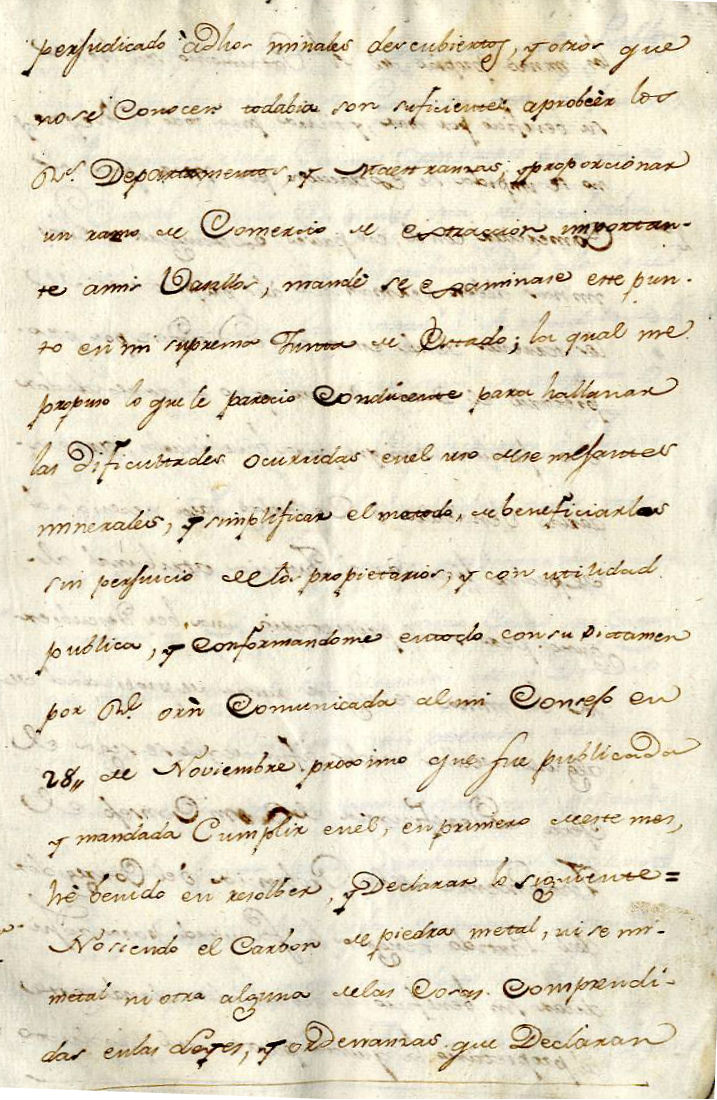 perjudicado â dhos minales descubiertos, y otros que
no se Conocen todabia son suficientes aprobêer los
Rs. Departamentos, y Maestranzas, y proporcionar
un ramo de Comercio de extraccion importan-
te amis Vasallos, mandé se examinase este pun-
to en mi suprema Junta de Estado; la qual me
propuso lo que le parecio Conducente para hallanar
las Dificultades ocurridas enel uso de semejantes
minerales, y simplificar el metodo, de beneficiarlos
sin perjuicio de los propietarios, y con utilidad
publica, y Conformandome entodo, con su Dictamen
por Rl. orñ Comunicada al mi Consejo en
28,, de Noviembre proximo que fue publicada
y mandada Cumplir enèl, en primero de este mes,
hè benido en resolber, y Declarar lo siguiente =
No siendo el Carbon de piedra metal, ni se mi-
metal ni otra alguna de las Cosas Comprendi-
das en las Leyes, y ordenanzas que Declaran